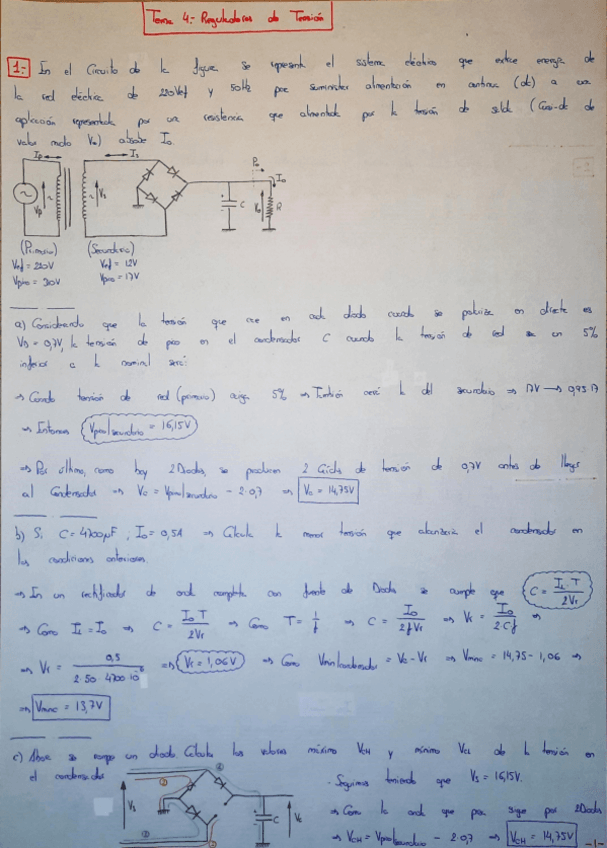 Tema 4.- Reguladores de Tensión
1.- En el Circuito de la figura se representa el sistema eléctrico que extrae energía de
la red eléctrica de 220Vef y 50Hz para suministrar alimentación en continua (dc) a una
aplicación representada por una resistencia que alimentada por la tensión de salida (Casi-dc de
valor medio Vo) absorbe Io.
Ip
Is
Po
Io
Vp
Vs
C
Vo
R
(Primario)
(Secundario)
Vef = 220V
Vef = 12V
Vpico = 310V
Vpico = 17V
a) Considerando que la tensión que cae en cada diodo cuando se polariza en directa es
VD = 0,7V, la tensión de pico en el condensador C cuando la tensión de red sea un 5%
inferior a la nominal será:
⇒ Cuando tensión de red (primario) caiga 5% ⇒ También caerá la del secundario ⇒ 17V → 0,95·17
⇒ Entonces Vpico|secundario = 16,15V
⇒ Por último, como hay 2 Diodos, se producen 2 Caídas de tensión de 0,7V antes de llegar
al Condensador ⇒ Vc = Vpico|secundario - 2·0,7 ⇒ Vc = 14,75V
b) Si C = 4700μF, Io = 0,5A ⇒ Calcula la menor tensión que alcanzaría el condensador en
las condiciones anteriores.
⇒ En un rectificador de onda completa con puente de Diodos se cumple que C = IL·T / 2Vr
⇒ Como IL = Io ⇒ C = Io T / 2Vr ⇒ Como T = 1/f ⇒ C = Io / 2fVr ⇒ Vr = Io / 2·C·f ⇒
⇒ Vr = 0,5 / 2·50·4700·10⁻⁶ ⇒ Vr = 1,06V ⇒ Como Vmin|condensador = Vc - Vr ⇒ Vminc = 14,75 - 1,06 ⇒
⇒ Vminc = 13,7V
c) Ahora se rompe un diodo. Calcula los valores máximo VCH y mínimo VCL de la tensión en
el condensador
Vs
C
Vc
· Seguimos teniendo que Vs = 16,15V.
⇒ Como la onda que pasa sigue por 2 Diodos
⇒ VCH = Vpico|secundario - 2·0,7 ⇒ VCH = 14,75V
-1-